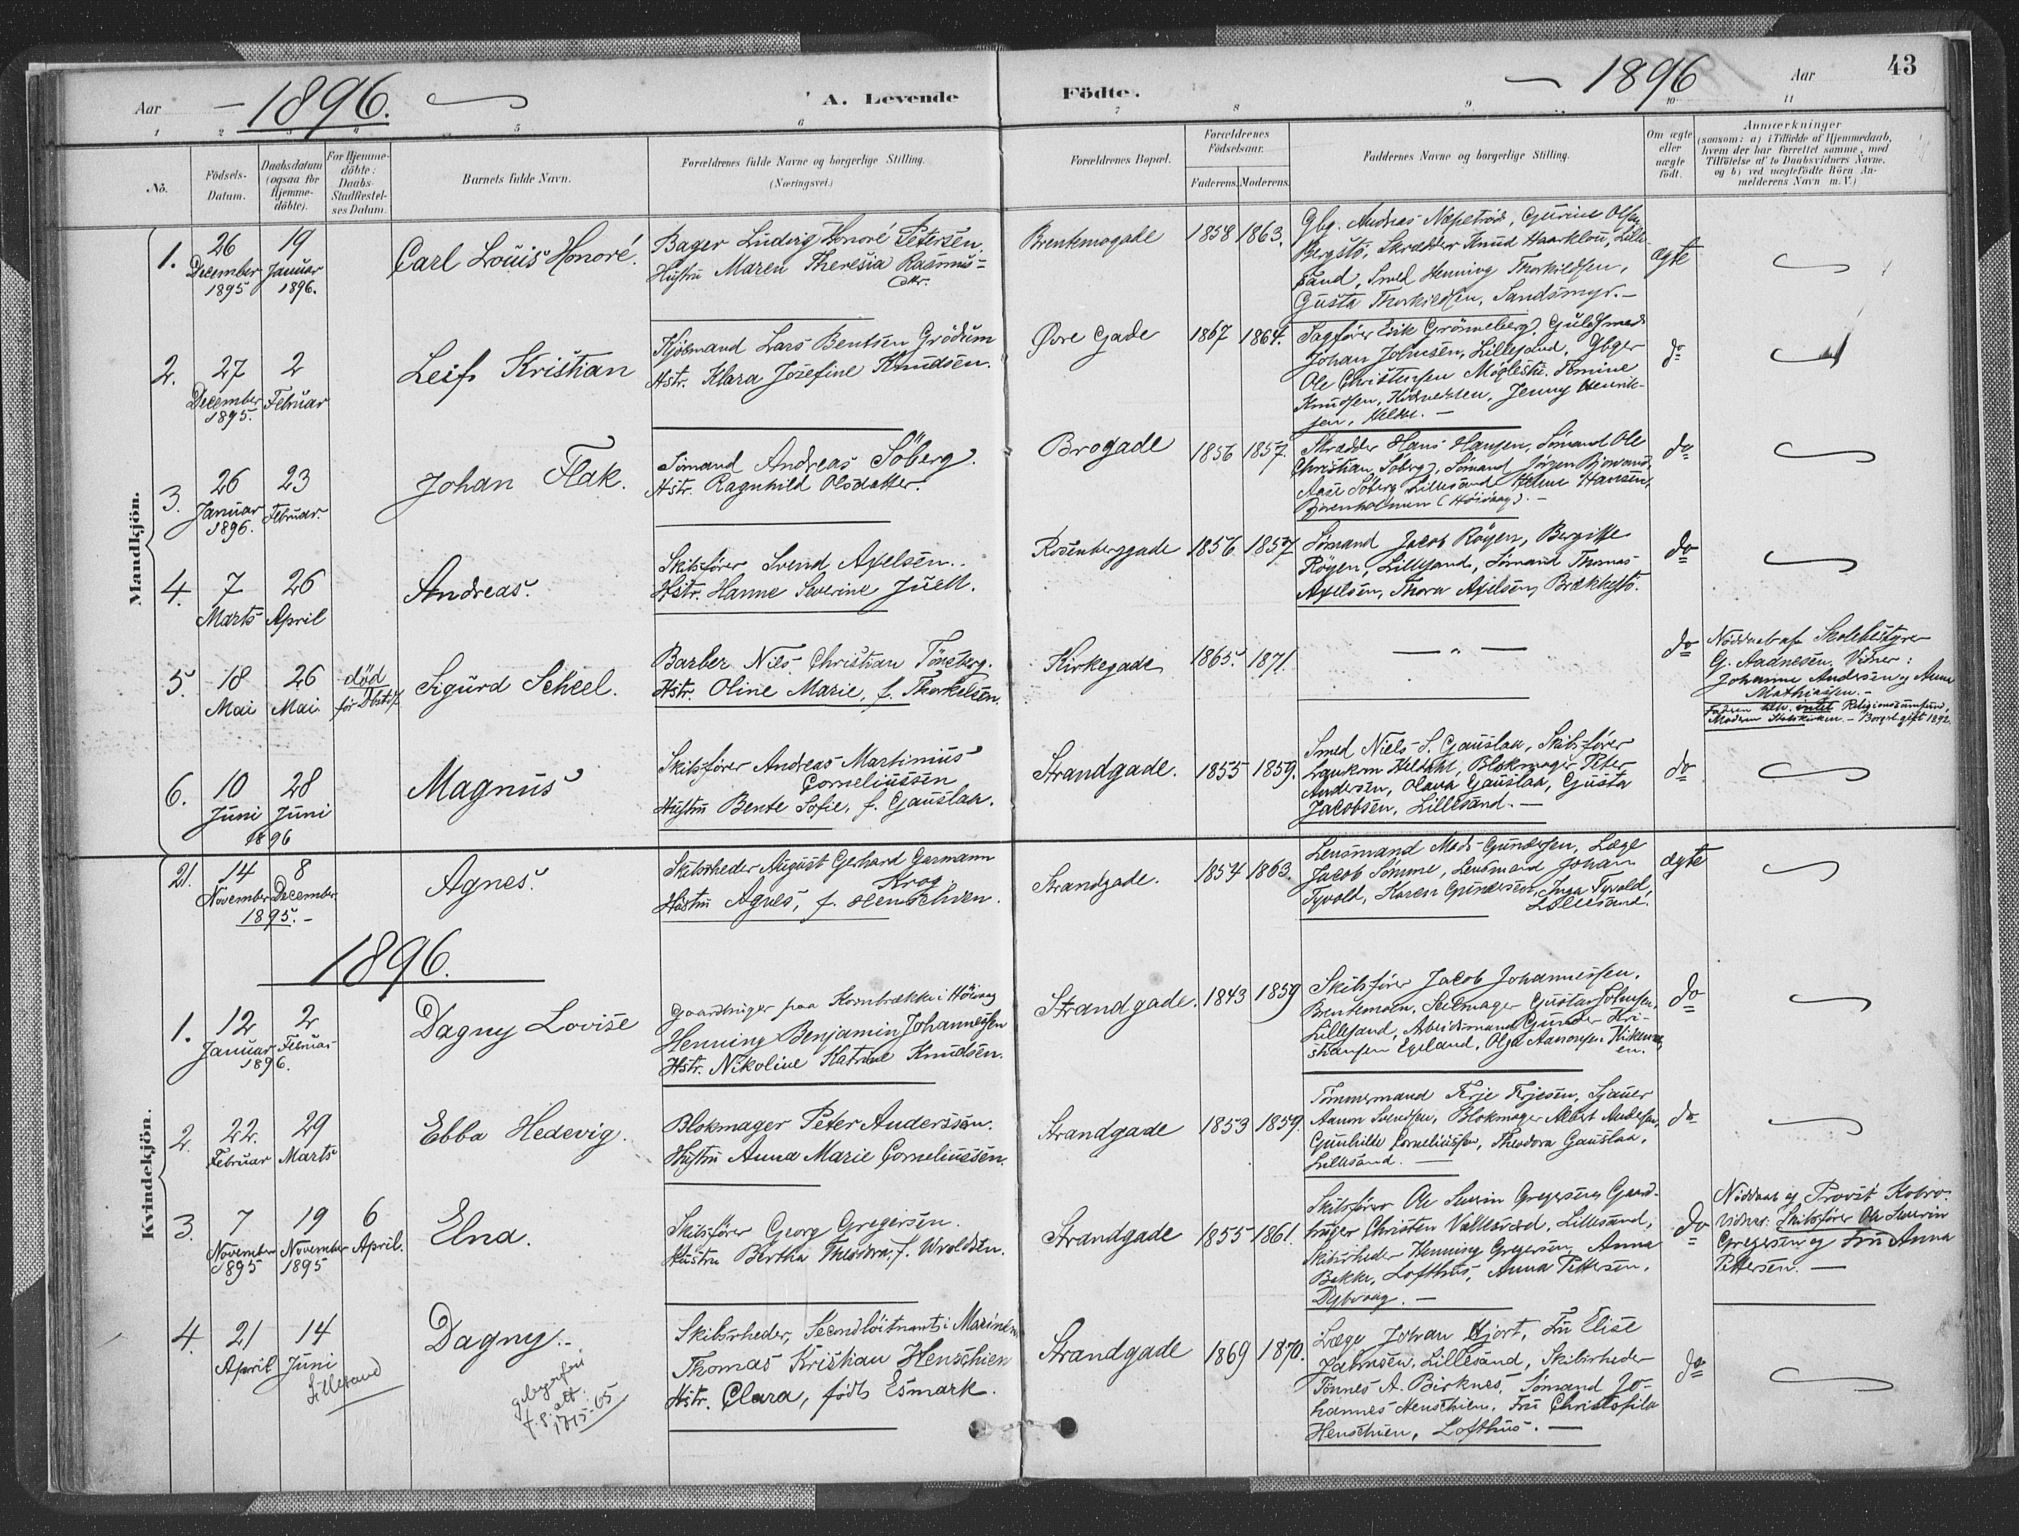 43
Aar 1896. A. Levende Födte. 1896 Aar
1 2 3 4 5 6 7 8 9 10 11
No.
Födsels-Datum.
Daabsdatum (ogsaa for Hjemme-döbte).
For Hjemme-döbte: Daabs-Stadfæstel-ses Datum.
Barnets fulde Navn.
Forældrenes fulde Navne og borgerlige Stilling.
(Næringsvei.)
Forældrenes Bopæl.
Forældrenes Födselsaar.
Faderens. Moderens.
Faddernes Navne og borgerlige Stilling.
Om ægte eller uægte födt.
Anmærkninger
(saasom: a) i Tilfælde af Hjemmedaab,
hvem der har forrettet samme, med
Tilföielse af to Daabsvidners Navne,
og b) ved uægtefödte Börn An-
melderens Navn m. V.)
Mandkjön.
1. 26 December 1895 19 Januar 1896.
Carl Louis Honoré.
Bager Ludvig Honoré Petersen
Hustru Maren Theresia Rasmus-
datr.
Brentemogade 1858 1863.
Gbg. Andreas Næpetröd, Gurine Olsen
Bergstö, Skrædder Knud Haarklou, Lille-
sand, Smed Henning Thorkildsen,
Gusta Thorkildsen, Sandsmyr. —
ægte
2. 27 December 1895. 2 Februar
Leif Kristian
Kjöbmand Lars Bentsen Grödum
Hstr. Klara Josefine Knudsen.
Øvre Gade 1867 1864.
Sagfører Erik Grönneberg, Guldsmed
Johan Johnsen, Lillesand, Gbger
Ole Christensen Möglestü, Tomine
Knudsen, Jenny Henrik-
sen,
do
3. 26 Januar 1896. 23 Februar.
Johan Flak.
Sömand Andreas Söberg.
Hstr. Ragnhild Olsdatter.
Brogade 1856 1857.
Skrædder Hans Hansen, Sømand Ole
Christian Söberg, Sømand Jörgen
Aase Söberg Lillesand Helene Hansen,
(Höivaag). —
do
4. 7 Marts 26 April
Andreas.
Skibsfører Svend Axelsen.
Hstr. Hanne Severine Juell.
Rosenberggade 1856 1857
Sömand Jacob Röyen, Bergitte
Röyen, Lillesand, Sömand Thomas
Axelsen, Thora Axelsen, Brækkestö.
do
5. 18 Mai 26 Mai. död
Sigurd Scheel.
Barber Nils Christian Tönsberg.
Hstr. Oline Marie, f. Thorkelsen.
Kirkegade 1865. 1871.
— " —
do
Nøddøbt af Skolebestyrer
G. Aadnesen. Vidner:
Johanne Andersen og Anna
Mathiassen. —
Faderen intet Religionssamfund,
Moderen Statskirken. — Borgerl. gift 1892.
6. 10 Juni 28 Juni 1896
Magnus
Skibsfører Andreas Martinius
Corneliussen
Hustru Bente Sofie, f. Gauslaa.
Strandgade. 1855 1859.
Smed Niels S. Gauslaa, Skibsfører
Heldahl, Blokmager Peter
Andersen, Olava Gauslaa, Gusta
Jacobsen, Lillesand. —
do
Kvindekjön.
21. 14 November 8 December 1895. —
Agnes.
Skibsrheder August Gerhard Garmann
Krog.
Hustru Agnes, f. Henschien.
Strandgade. 1854 1863.
Lensmand Mads Gundersen, Læge
Jacob Sömme, Lensmand Johan
Tyvold, Karen Gundersen, Inga Tyvold,
Lillesand.
ægte
1896.
1. 12 Januar 2 Februar 1896.
Dagny Lovise
Gaardbruger paa Kornbrække i Höivaag
Henning Benjamin Johannessen
Hstr. Nikoline Katrine Knudsen.
Strandgade. 1843 1859
Skibsfører Jacob Johannessen,
Brentemoen, Seilmager Gustav Johnsen,
Lillesand, Arbeidsmand Gunder Kri-
stiansen Egeland, Olga Aanonsen,
do
2. 22. Februar 29 Marts
Ebba Hedevig.
Blokmager Peter Anderssen.
Hustru Anna Marie Corneliussen.
Strandgade 1853 1859.
Tömmermand Terje Terjesen, Sjauer
Aanon Svendsen, Blokmager Albert Andersen,
Gunhilde Corneliussen, Theodora Gauslaa,
Lillesand. —
do
3. 7 November 1895 19 November 1895 6 April.
Elna.
Skibsfører Georg Gregersen.
Hustru Bertha Theodora, f. Uvoldsen.
Strandgade 1855 1861.
Skibsfører Ole Severin Gregersen, Gaard-
bruger Christen Vallesværd, Lillesand,
Skibsrheder Henning Gregersen, Anna
Bakke, Lofthus, Anna Pettersen,
Dybvaag. —
do
Nøddøbt af Provst Kobro.
Vidner: Skibsfører Ole Severin
Gregersen og Fru Anna
Pettersen. —
4. 21 April 14 Juni
Lillesand
Dagny.
Skibsrheder, Secondlöitnant i Marinen
Thomas Kristian Henschien
Hstr. Clara, födt Esmark.
Strandgade 1869 1870.
Læge Johan Hjort, Fru Elise
Jahnsen, Lillesand, Skibsrheder
Tönnes A. Birknes, Sömand Jo-
hannes Henschien, Fru Christofila
Henschien, Lofthus. —
do